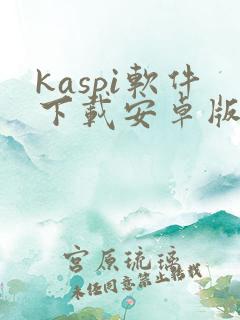 kaspi軟件
下載安卓版
宮原琉璃
未经同意禁止转载